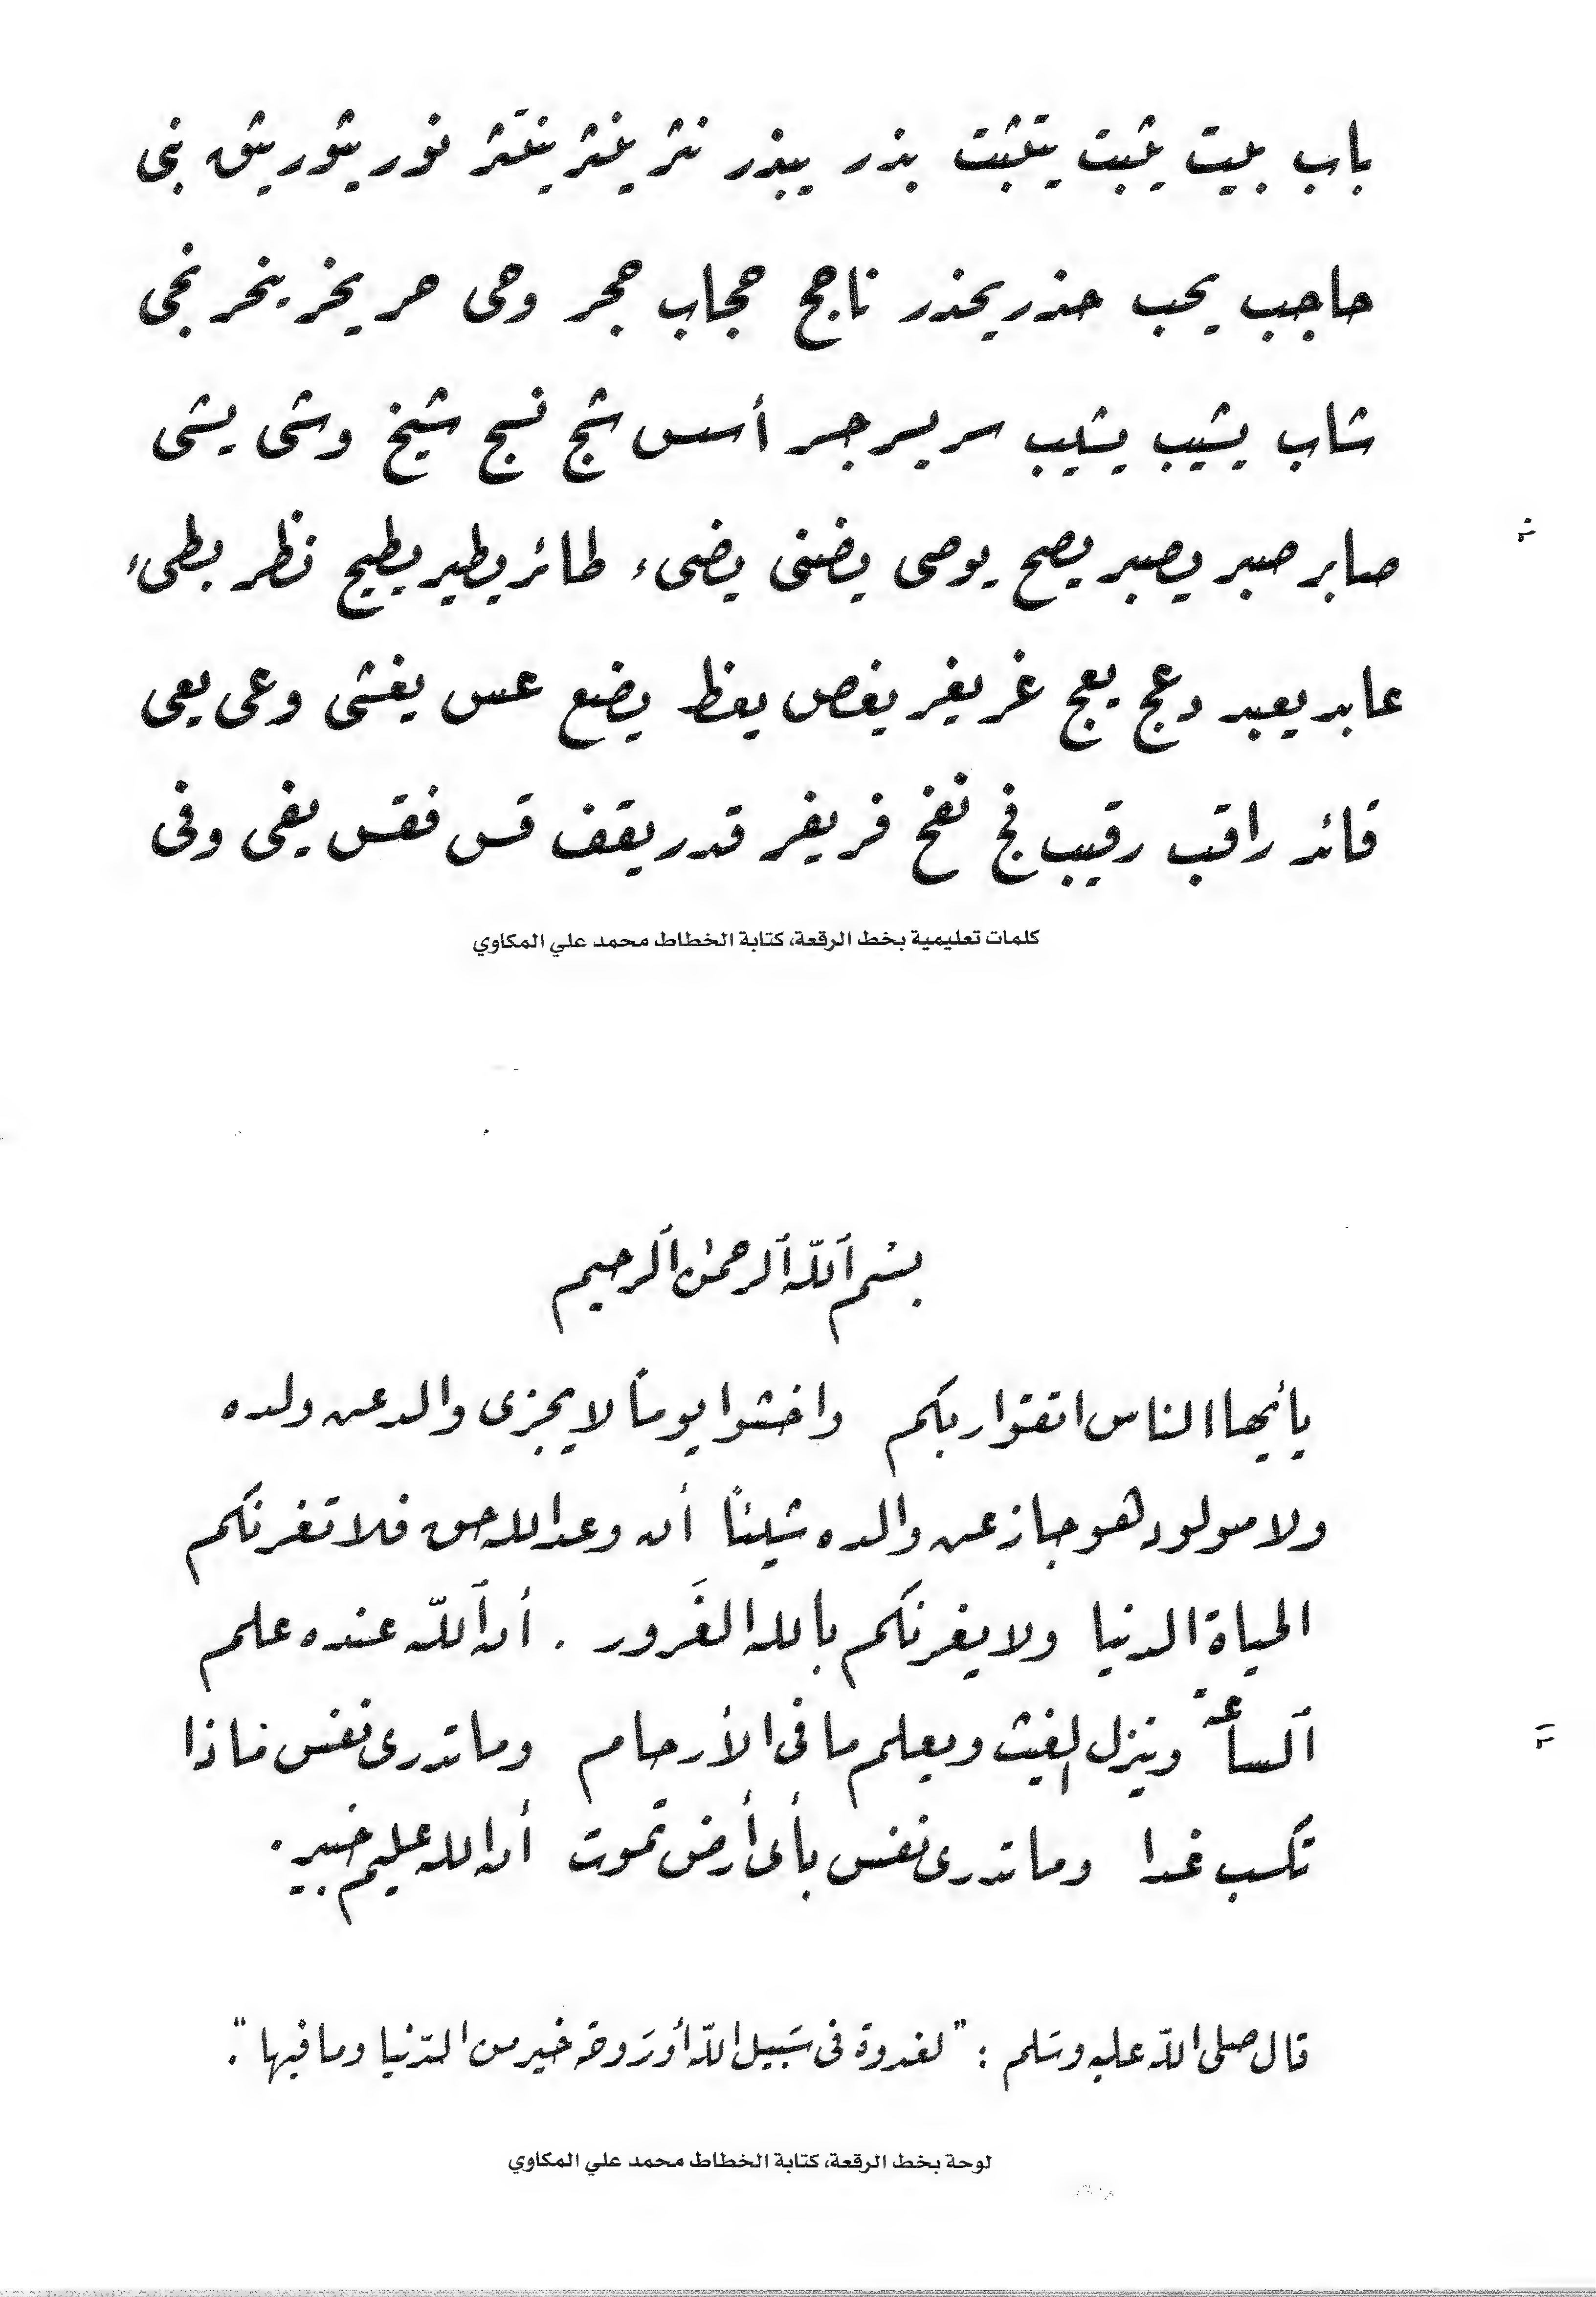 باب بيت يثبت يتثبت بذر يبذر نثر ينثر ينتثر نور يثور يثق بنى
حاجب يحب حذر يحذر ناجح حجاب حجر وحى حر يخر ينخر نجى
شاب يشيب يشبب سر يسر جسر أسس شج نسج شيخ وشى يشى
صابر صبر يصبر يصح يوصى يضنى يضىء طائر يطير يطيح نظر بطىء
عابد يعبد دعج يعج غر يغر يغص يعظ يضع عس يغشى وعى يعى
قائد راقب رقيب فج نفخ فر يفر قدر يقف قس فقس يفى وفى
كلمات تعليمية بخط الرقعة، كتابة الخطاط محمد علي المكاوي
بسم ٱللّه ٱلرحمٰن ٱلرحيم
يأيها الناس اتقوا ربكم واخشوا يوماً لا يجزى والد عن ولده
ولا مولود هو جاز عن والده شيئاً أن وعد الله حق فلا تغرنكم
الحياة الدنيا ولا يغرنكم بالله الغَرور . أن ٱللّه عنده علم
ٱلساعة وينزل الغيث ويعلم ما فى الأرحام وما تدرى نفس ماذا
تكسب غدا وما تدرى نفس بأى أرض تموت أن الله عليم خبير .
قال صلى اللّه عليه وسَلم : "لغدوة فى سَبيل اللّه أو رَوحة خير من الدّنيا وما فيها".
لوحة بخط الرقعة، كتابة الخطاط محمد علي المكاوي